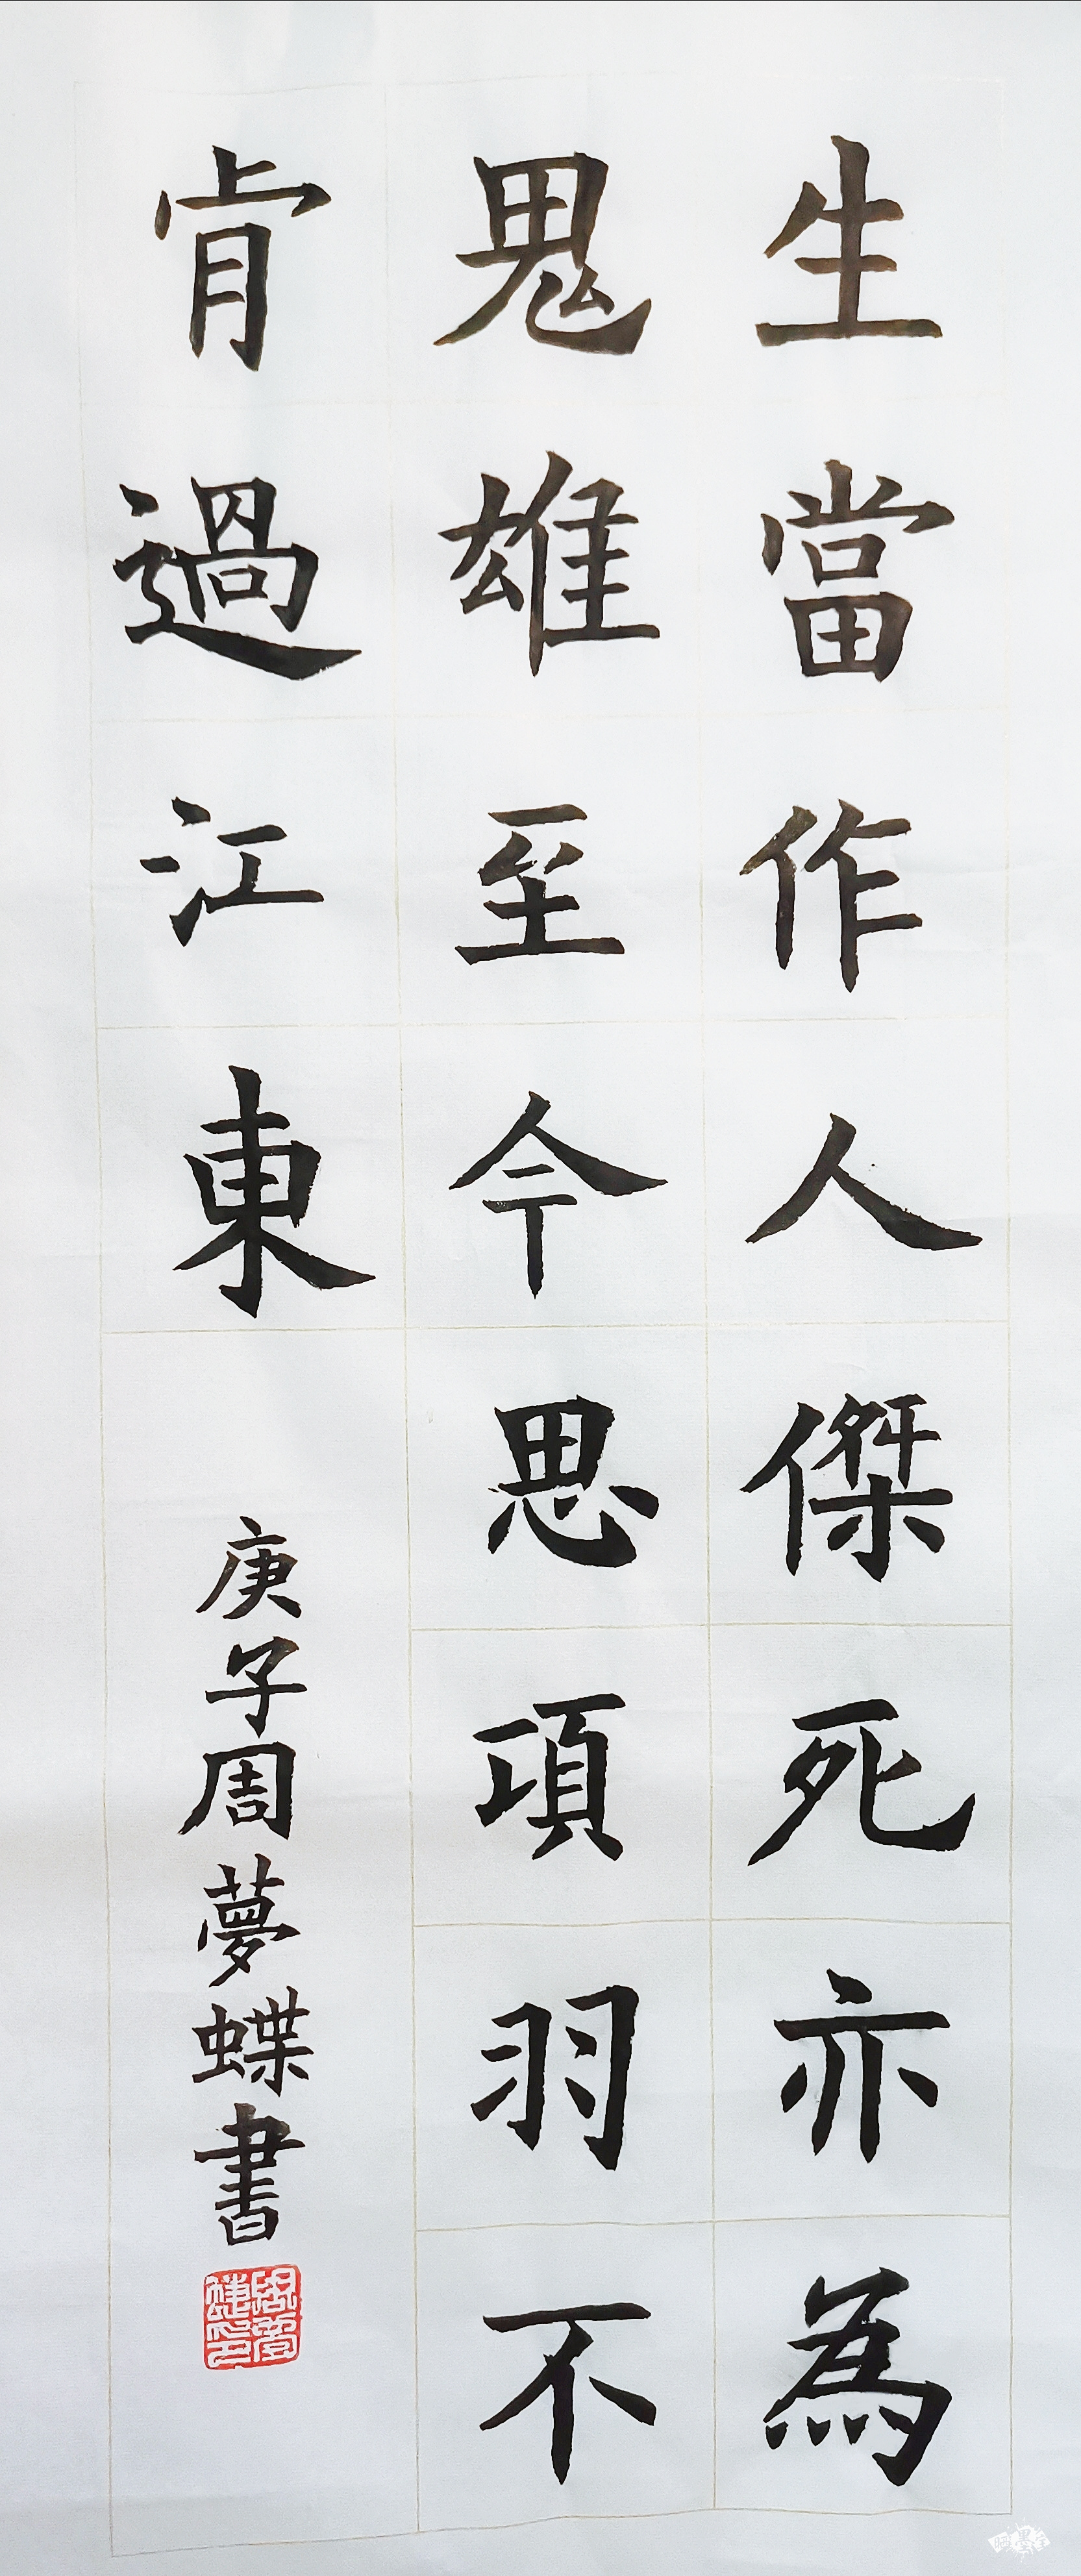 生當作人傑死亦為
鬼雄至今思項羽不
肯過江東
庚子周夢蝶書